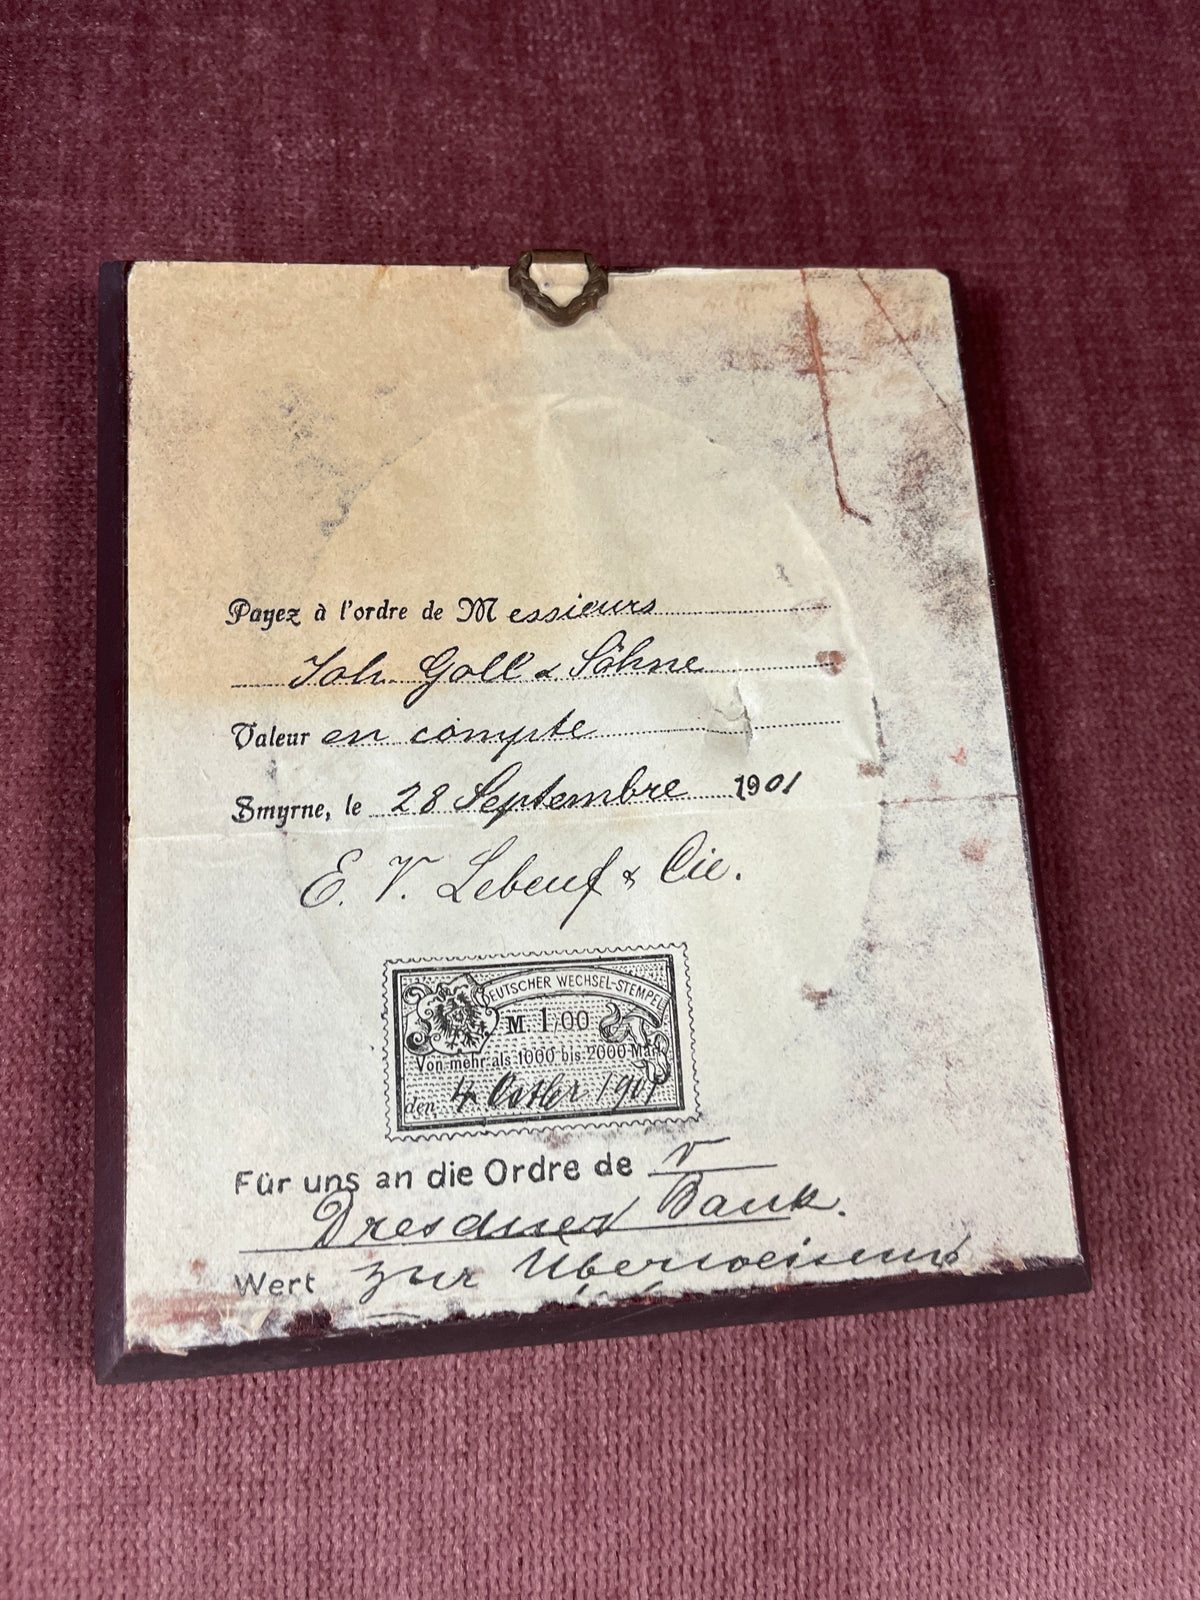 Payez à l'ordre de Messieurs
Joh. Goll & Söhne
Valeur en compte
Smyrne, le 28 Septembre 1901
E. V. Lebeuf & Cie.
DEUTSCHER WECHSEL-STEMPEL
M. 1,00
Von mehr als 1000 bis 2000 Mark
den 4 1901
Für uns an die Ordre de r
Dresdner Bank.
Wert zur Überweisung